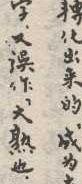 轉化出来的成為
字,又误作「大熟也